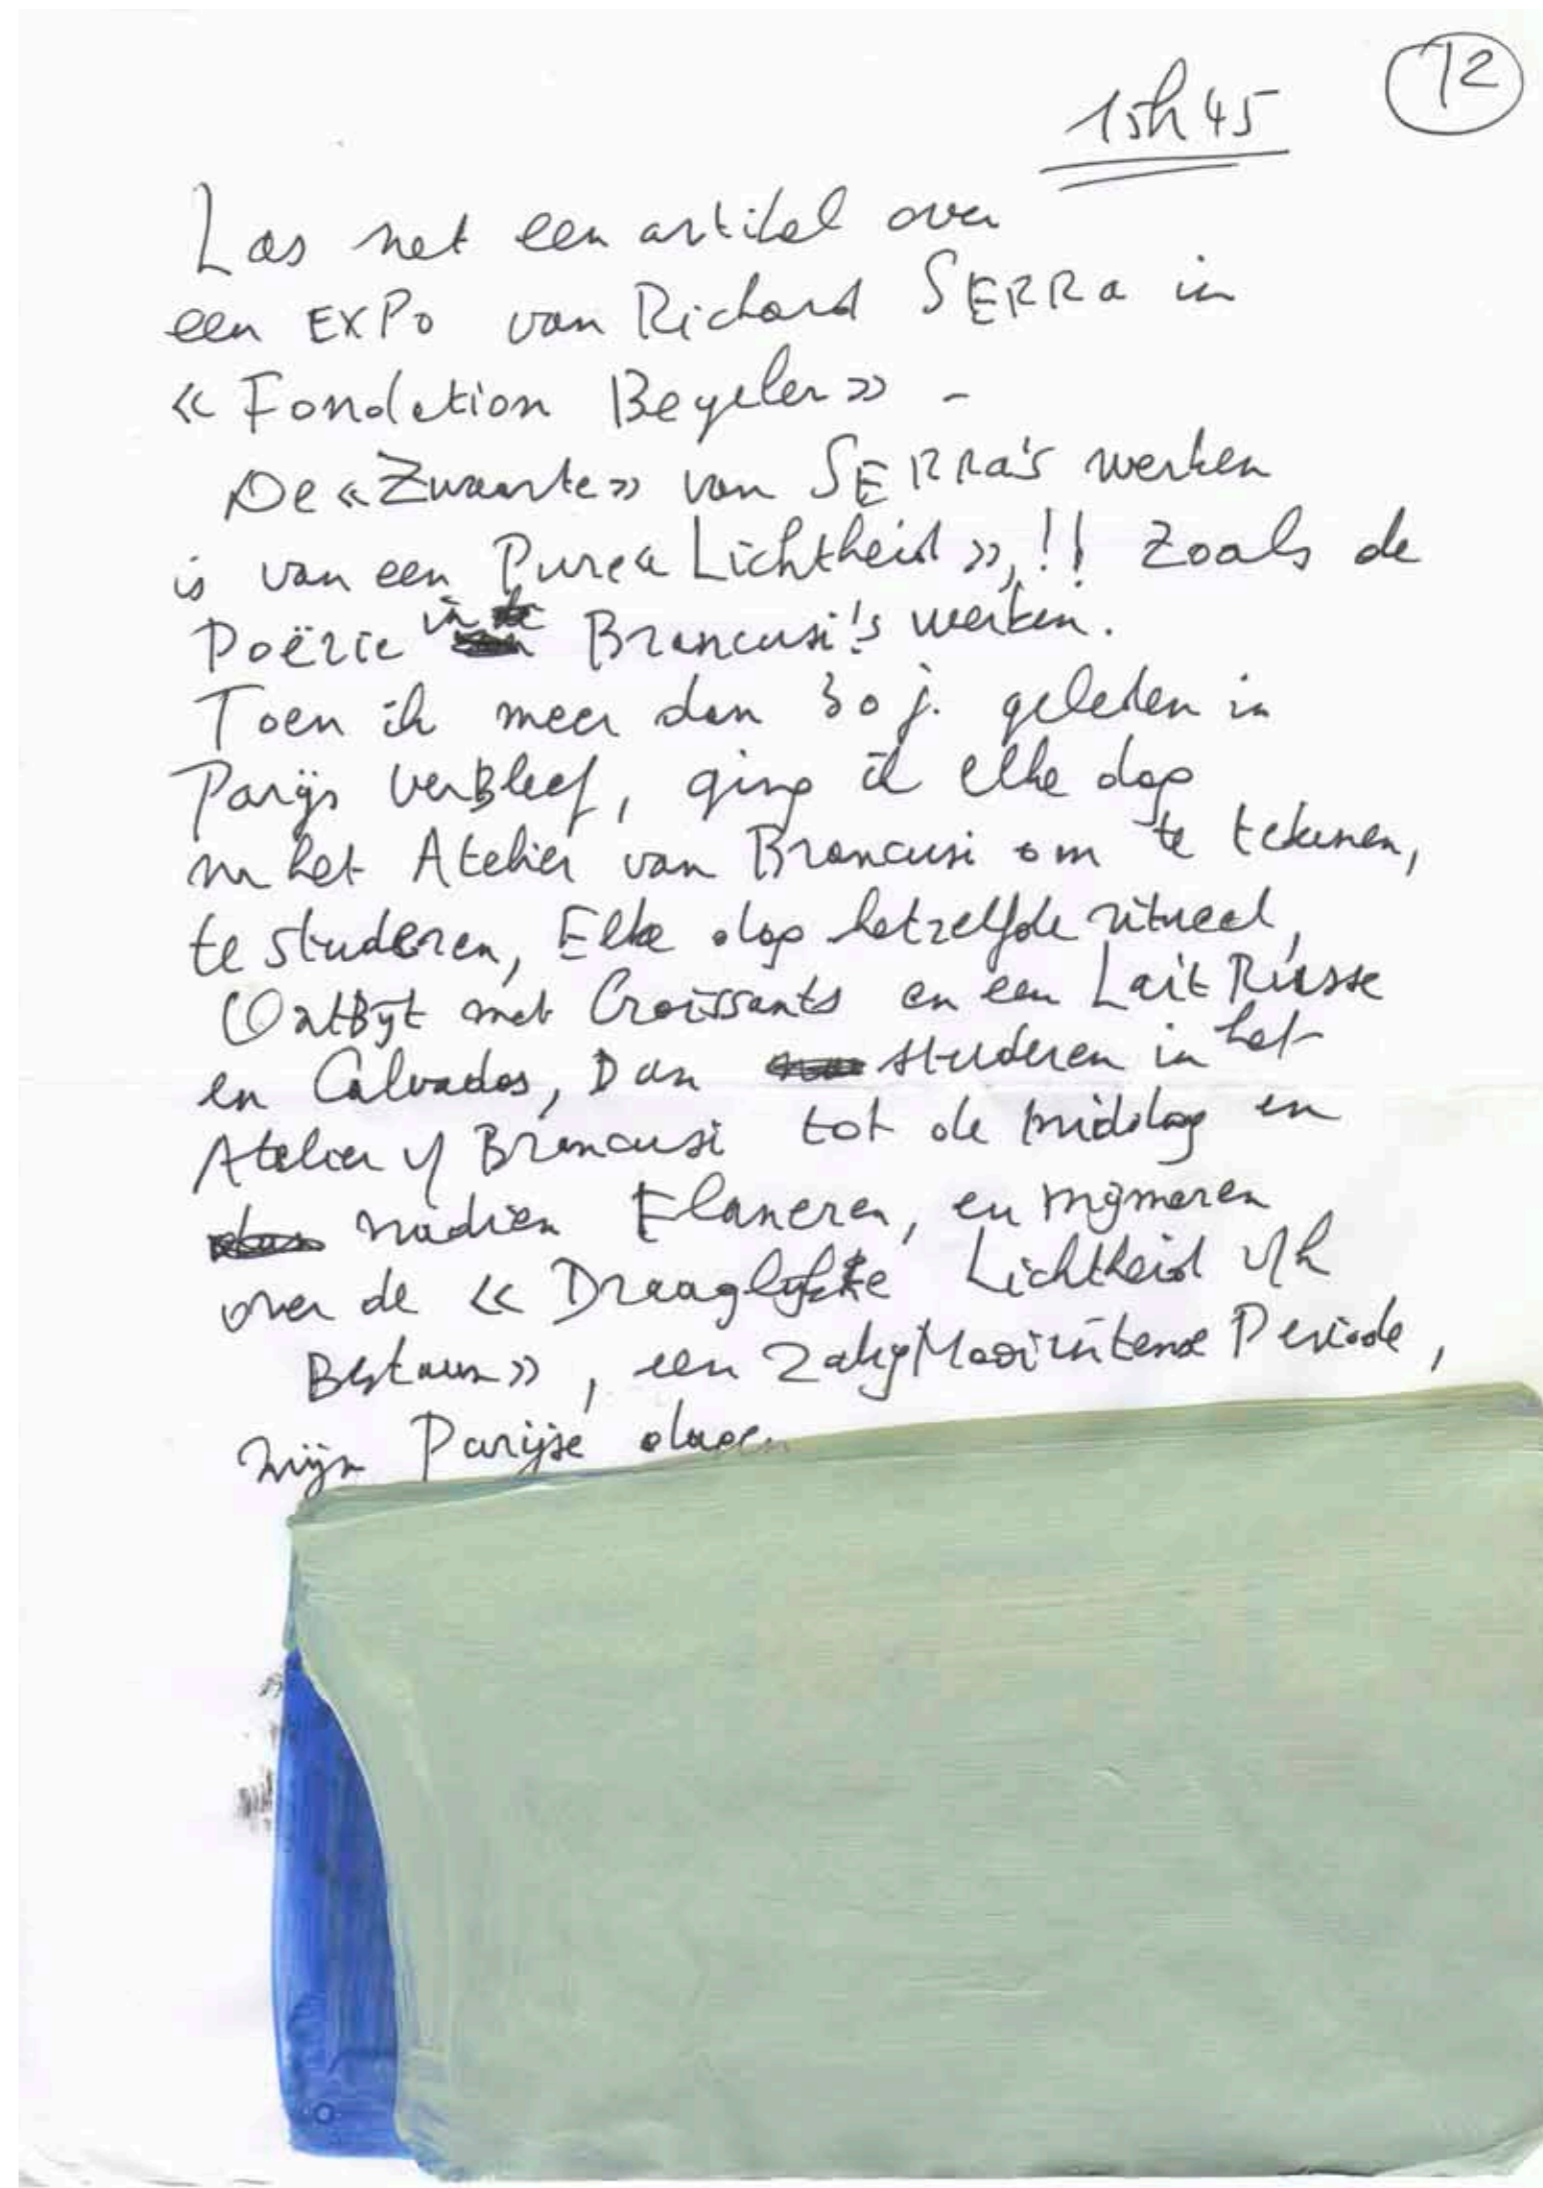 12
15h45
Las net een artikel over
een EXPO van Richard SERRA in
« Fondation Beyeler » -
De « Zwaarte » van SERRA's werken
is van een Pure « Lichtheid », !! Zoals de
Poëzie in Brancusi's werken.
Toen ik meer dan 30 j. geleden in
Parijs verBleef, ging ik elke dag
in het Atelier van Brancusi om te tekenen,
te studeren, Elke dag hetzelfde ritueel,
Ontbijt met Croissants en een Lait Russe
en Calvados, Dan studeren in het
Atelier v/ Brancusi tot de middag en
nadien Flaneren, en mijmeren
over de « Draaglijke Lichtheid v/h
Bestaan », een Zalig Mooi Periode,
mijn Parijse dagen